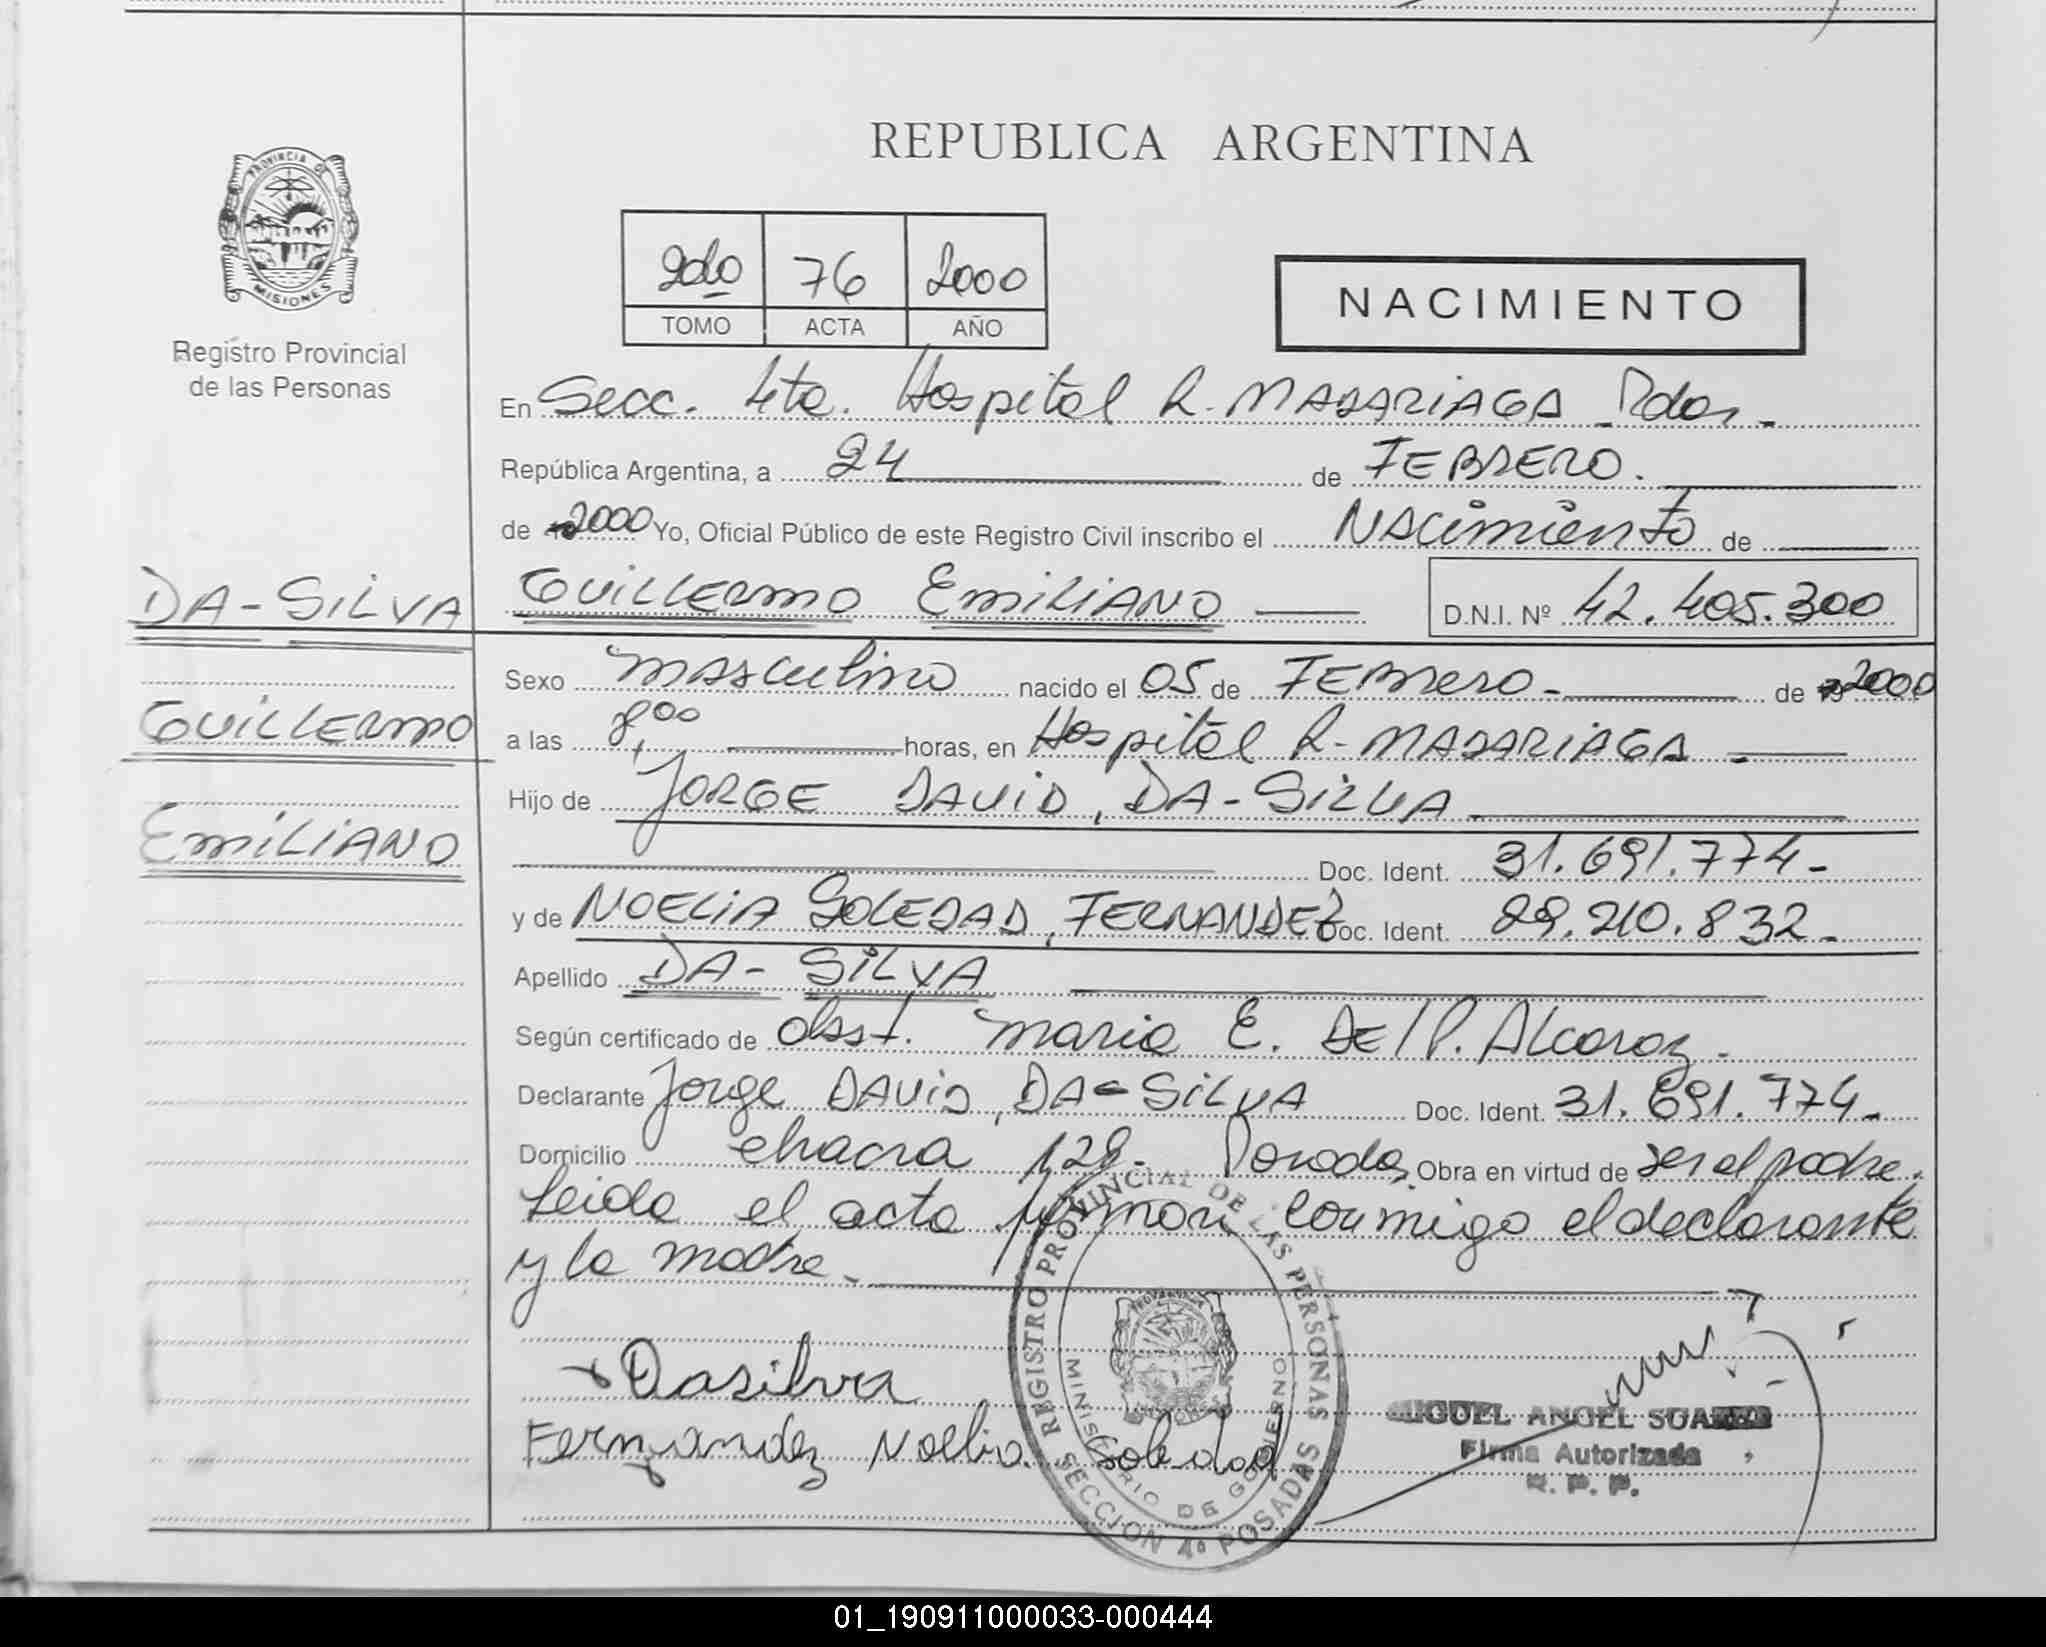 REPUBLICA ARGENTINA
PROVINCIA DE MISIONES
Registro Provincial
de las Personas
2do 76 2000
TOMO ACTA AÑO
NACIMIENTO
En Secc. 4ta. Hospital R. MADARIAGA - Pdas -
República Argentina, a 24 de FEBRERO.
de 2000 Yo, Oficial Público de este Registro Civil inscribo el NACimiento de
DA-SILVA GUILLERMO EMILIANO D.N.I. Nº 42.405.300
GUILLERMO
EMILIANO
Sexo masculino nacido el 05 de FEBRERO - de 2000
a las 8,00 horas, en Hospital R. MADARIAGA -
Hijo de JORGE DAVID, DA-SILVA -
Doc. Ident. 31.691.774-
y de NOELIA SOLEDAD, FERNANDEZ Doc. Ident. 29.210.832-
Apellido DA-SILVA
Según certificado de obst. maria E. DE P. Alcaraz.
Declarante Jorge DAVID, DA-SILVA Doc. Ident. 31.691.774-
Domicilio chacra 128- Posadas Obra en virtud de ser el padre.
Leida el acta firman conmigo el declarante
y la madre.-
Dasilva
Fernandez Noelia Soledad
REGISTRO PROVINCIAL DE LAS PERSONAS
MINISTERIO DE GOBIERNO
SECCION 4º POSADAS
MIGUEL ANGEL SUAREZ
Firma Autorizada
R. P. P.
01_190911000033-000444